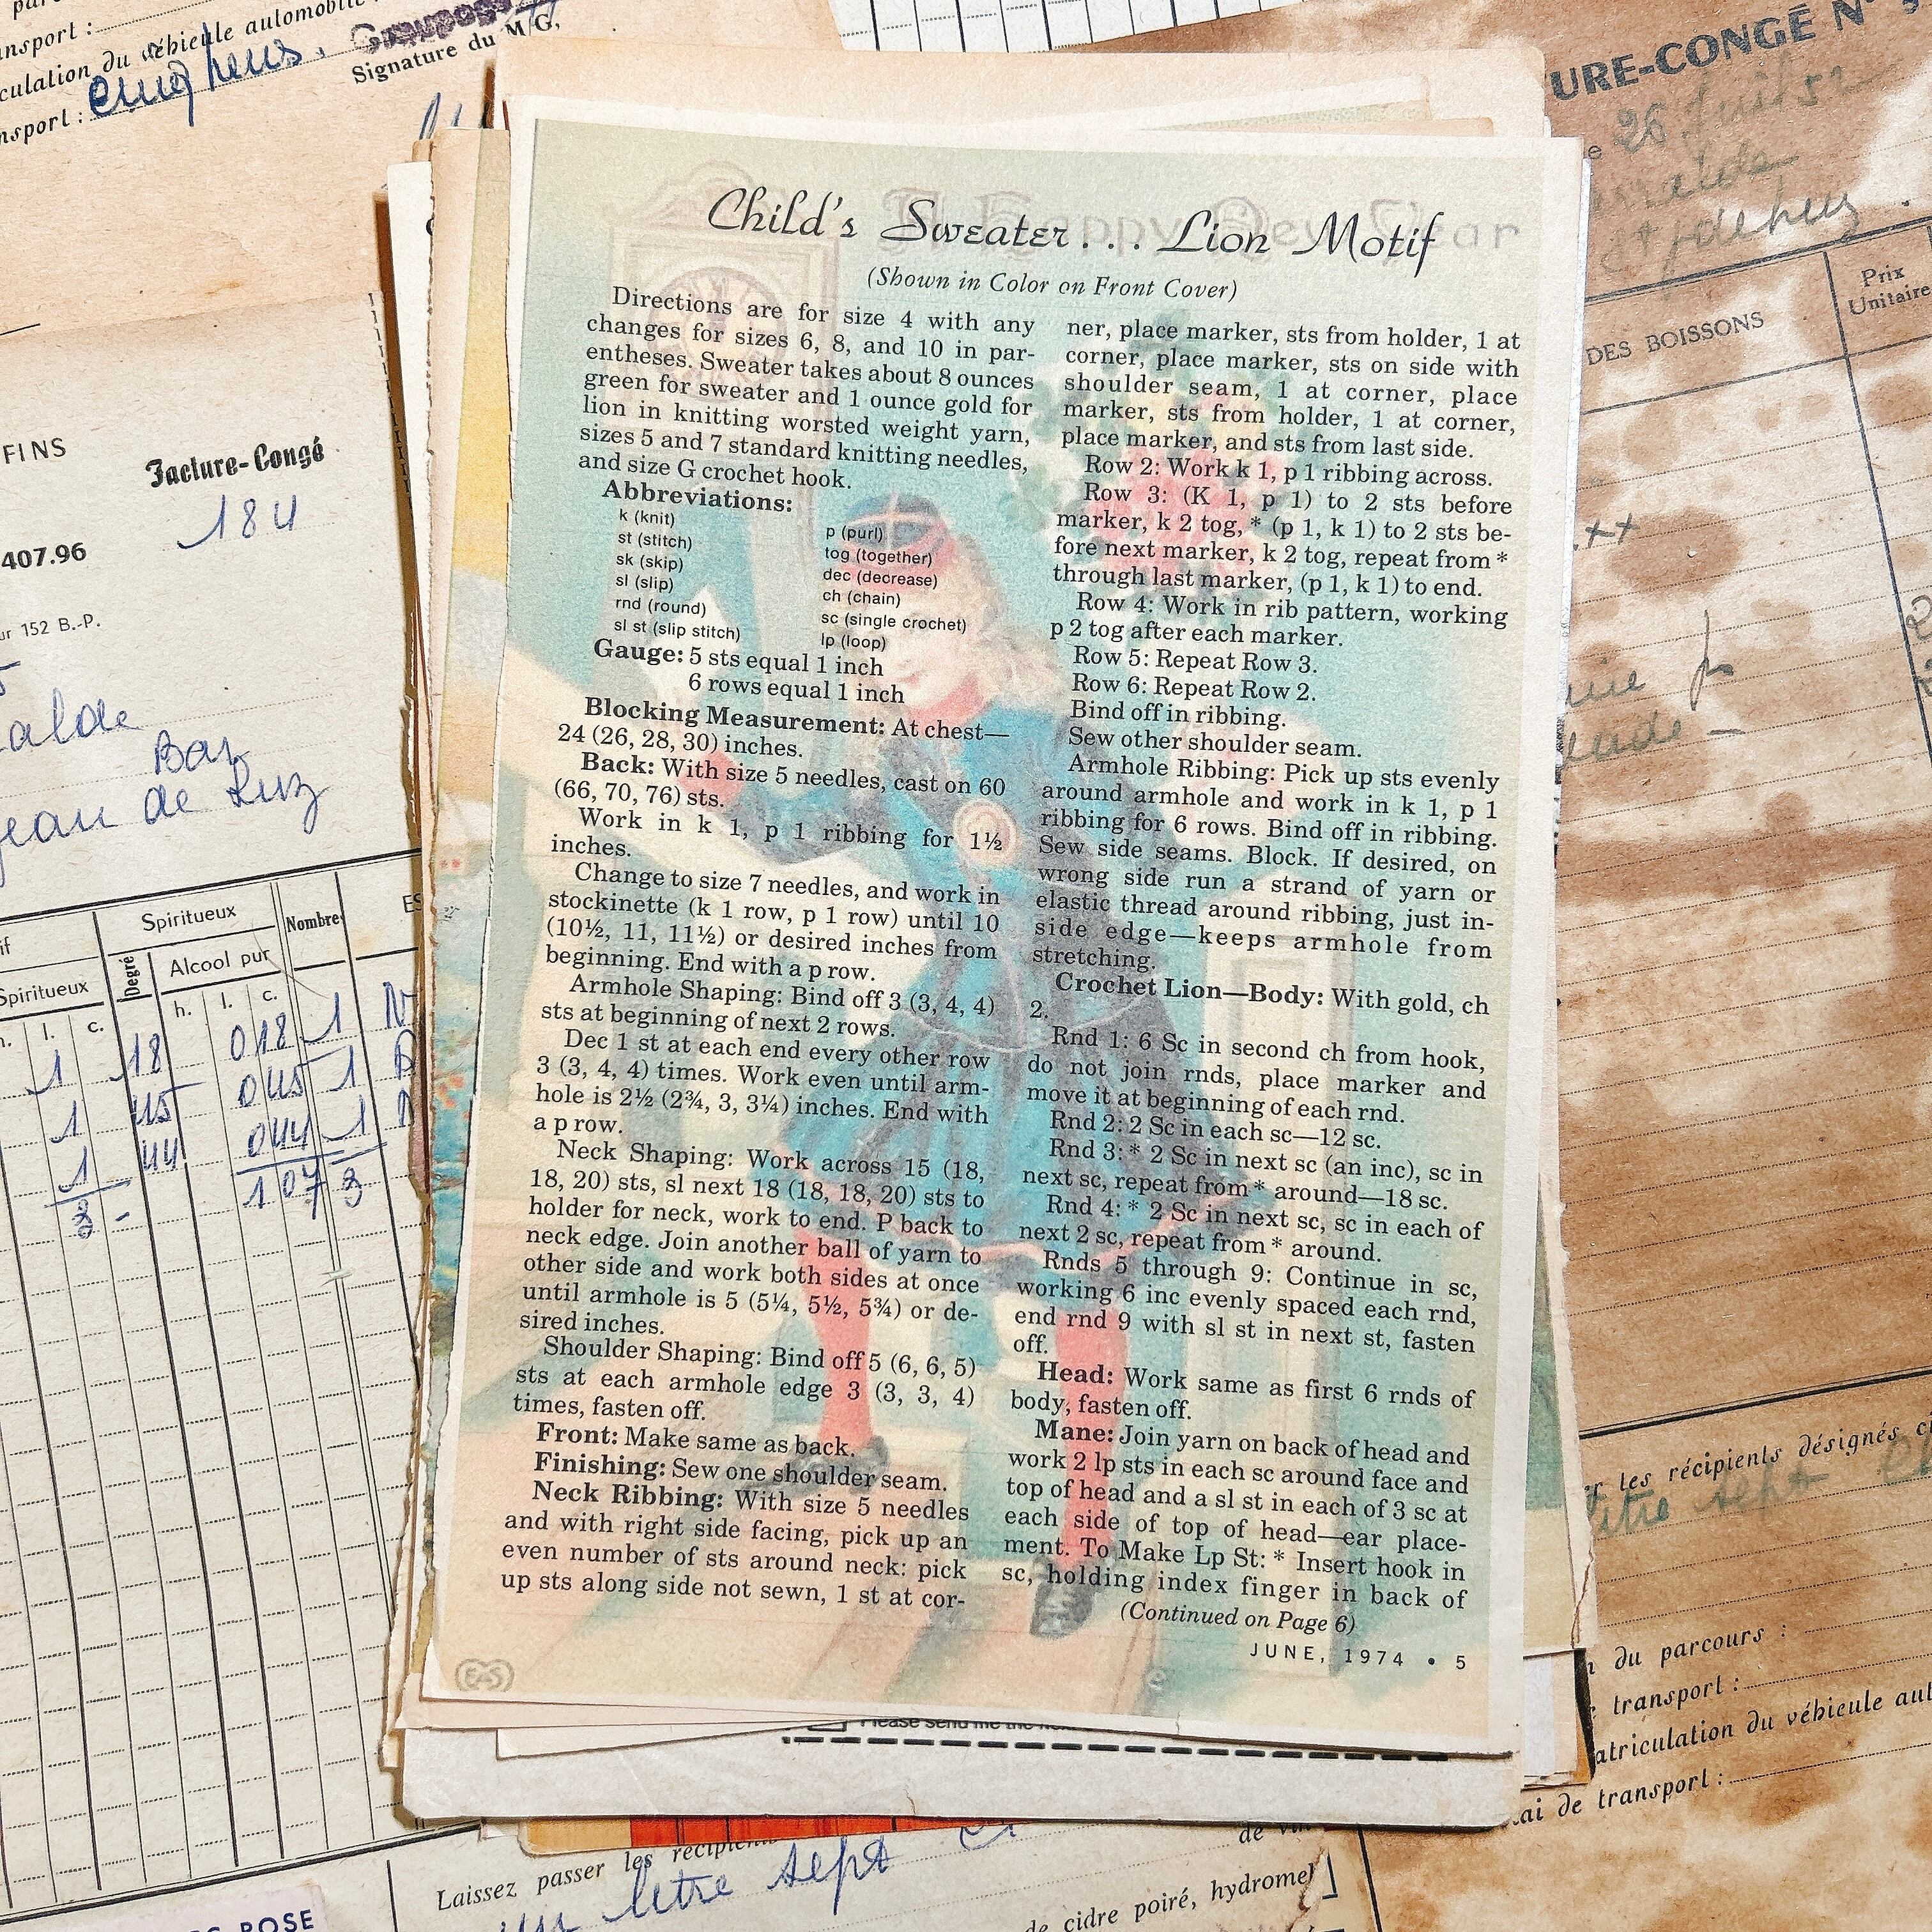 nsport :
culation du véhicule automobile
nsport : cinq heures.
Signature du M/G,
URE-CONGÉ N°
26 Juillet 52
DES BOISSONS
Prix
Unitaire
FINS
Facture-Congé
184
407.96
ur 152 B.-P.
alde
Bar
Jean de Luz
Spiritueux
Nombre
Spiritueux
Degré
Alcool pur
h. l. c.
l. c.
1 18 018 1
1 45 045 1
1 44 044 1
3 - 107 3
A Happy New Year
Child's Sweater . . . Lion Motif
(Shown in Color on Front Cover)
Directions are for size 4 with any
changes for sizes 6, 8, and 10 in par-
entheses. Sweater takes about 8 ounces
green for sweater and 1 ounce gold for
lion in knitting worsted weight yarn,
sizes 5 and 7 standard knitting needles,
and size G crochet hook.
Abbreviations:
k (knit)
st (stitch)
sk (skip)
sl (slip)
rnd (round)
sl st (slip stitch)
p (purl)
tog (together)
dec (decrease)
ch (chain)
sc (single crochet)
lp (loop)
Gauge: 5 sts equal 1 inch
6 rows equal 1 inch
Blocking Measurement: At chest—
24 (26, 28, 30) inches.
Back: With size 5 needles, cast on 60
(66, 70, 76) sts.
Work in k 1, p 1 ribbing for 1½
inches.
Change to size 7 needles, and work in
stockinette (k 1 row, p 1 row) until 10
(10½, 11, 11½) or desired inches from
beginning. End with a p row.
Armhole Shaping: Bind off 3 (3, 4, 4)
sts at beginning of next 2 rows.
Dec 1 st at each end every other row
3 (3, 4, 4) times. Work even until arm-
hole is 2½ (2¾, 3, 3¼) inches. End with
a p row.
Neck Shaping: Work across 15 (18,
18, 20) sts, sl next 18 (18, 18, 20) sts to
holder for neck, work to end. P back to
neck edge. Join another ball of yarn to
other side and work both sides at once
until armhole is 5 (5¼, 5½, 5¾) or de-
sired inches.
Shoulder Shaping: Bind off 5 (6, 6, 5)
sts at each armhole edge 3 (3, 3, 4)
times, fasten off.
Front: Make same as back.
Finishing: Sew one shoulder seam.
Neck Ribbing: With size 5 needles
and with right side facing, pick up an
even number of sts around neck: pick
up sts along side not sewn, 1 st at cor-
ner, place marker, sts from holder, 1 at
corner, place marker, sts on side with
shoulder seam, 1 at corner, place
marker, sts from holder, 1 at corner,
place marker, and sts from last side.
Row 2: Work k 1, p 1 ribbing across.
Row 3: (K 1, p 1) to 2 sts before
marker, k 2 tog, * (p 1, k 1) to 2 sts be-
fore next marker, k 2 tog, repeat from *
through last marker, (p 1, k 1) to end.
Row 4: Work in rib pattern, working
p 2 tog after each marker.
Row 5: Repeat Row 3.
Row 6: Repeat Row 2.
Bind off in ribbing.
Sew other shoulder seam.
Armhole Ribbing: Pick up sts evenly
around armhole and work in k 1, p 1
ribbing for 6 rows. Bind off in ribbing.
Sew side seams. Block. If desired, on
wrong side run a strand of yarn or
elastic thread around ribbing, just in-
side edge—keeps armhole from
stretching.
Crochet Lion—Body: With gold, ch
2.
Rnd 1: 6 Sc in second ch from hook,
do not join rnds, place marker and
move it at beginning of each rnd.
Rnd 2: 2 Sc in each sc—12 sc.
Rnd 3: * 2 Sc in next sc (an inc), sc in
next sc, repeat from * around—18 sc.
Rnd 4: * 2 Sc in next sc, sc in each of
next 2 sc, repeat from * around.
Rnds 5 through 9: Continue in sc,
working 6 inc evenly spaced each rnd,
end rnd 9 with sl st in next st, fasten
off.
Head: Work same as first 6 rnds of
body, fasten off.
Mane: Join yarn on back of head and
work 2 lp sts in each sc around face and
top of head and a sl st in each of 3 sc at
each side of top of head—ear place-
ment. To Make Lp St: * Insert hook in
sc, holding index finger in back of
(Continued on Page 6)
JUNE, 1974 • 5
EAS
Please send me the
les récipients désignés
litre sept
du parcours :
transport :
atriculation du véhicule aut
ai de transport :
Laissez passer les récipients
de vin
un litre sept
de cidre poiré, hydromel
ROSE